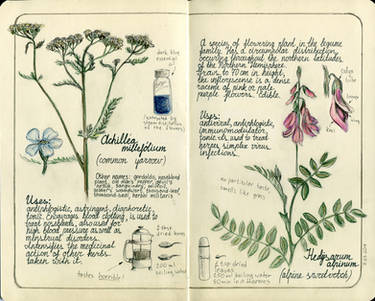 dark blue
essential
oil
(extracted by
steam distillation
of the flowers)
Achillea
millefolium
(common yarrow)
Other names: gordaldo, nosebleed
plant, old man's pepper, devil's
nettle, sanguinary, milfoil,
soldier's woundwort, thousand-leaf
thousand-seal, herba militaris
Uses:
antiphlogistic, astringent, diaphoretic,
tonic. Encourages blood clotting, is used to
treat
high blood pressure as well as
menstrual disorders.
Intensifies the medicinal
action of other herbs
taken with it.
dried herb
boiling water
tastes horrible!
A species of flowering plant in the legume
family. Has a circumpolar distribution,
occurring throughout the northern latitudes
of the Northern Hemisphere.
Grows to 70 cm in height,
the inflorescence is a dense
raceme of pink or pale
purple flowers. Edible.
Uses:
antiviral, antiphlogistic,
immunomodulator,
tonic. Is used to treat
herpes simplex virus
infections.
no particular taste,
smells like peas
2 tsp dried
leaves
250 ml boiling water
30 min in thermos
Hedysarum
alpinum
(alpine sweetvetch)